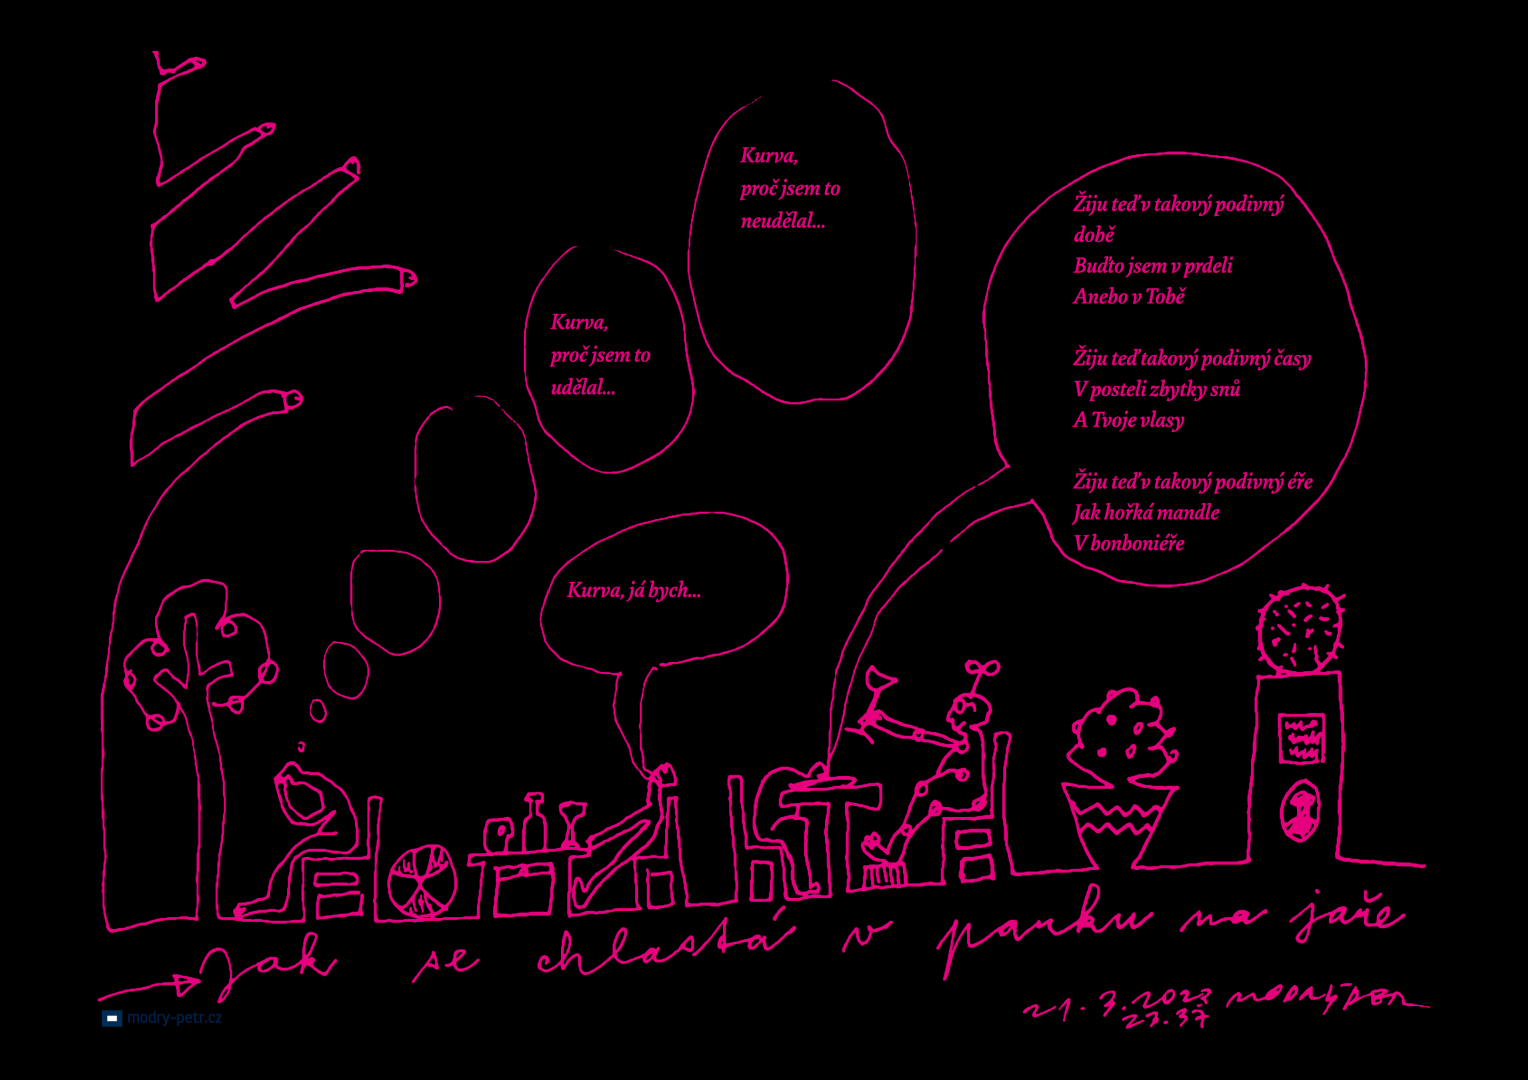 Kurva,
proč jsem to
neudělal...
Kurva,
proč jsem to
udělal...
Kurva, já bych...
Žiju teď v takový podivný
době
Buďto jsem v prdeli
Anebo v Tobě
Žiju teď takový podivný časy
V posteli zbytky snů
A Tvoje vlasy
Žiju teď v takový podivný éře
Jak hořká mandle
V bonboniéře
Jak se chlastá v parku na jaře
21.3.2023
23.37
modry-petr.cz